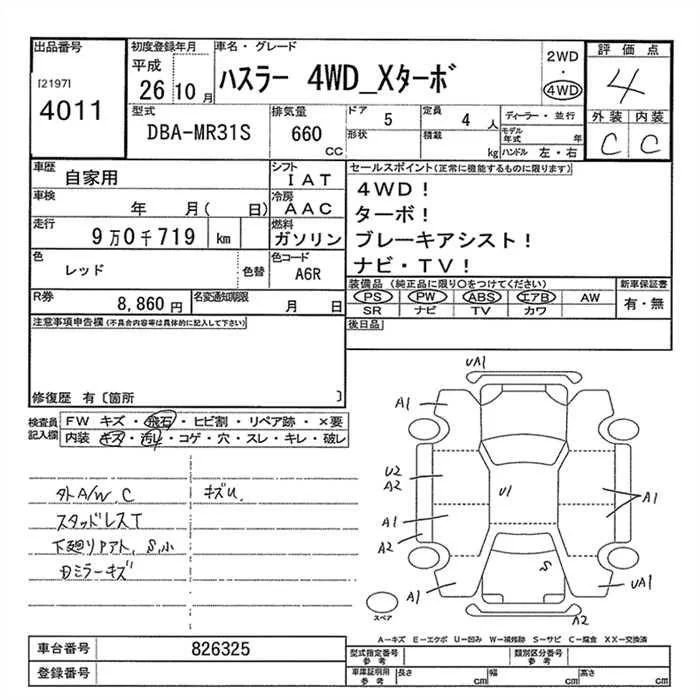 出品番号
[2197]
4011
初度登録年月
平成
26 10月
車名・グレード
ハスラー 4WD_Xターボ
2WD
・
4WD
評価点
4
外装 内装
C C
型式
DBA-MR31S
排気量
660
CC
ドア 5
定員 4 人
形状
積載 kg
ディーラー・並行
モデル年式 年
ハンドル 左・右
車歴
自家用
シフト
IAT
車検
年 月( 日)
冷房
AAC
走行
9万0千719 km
燃料
ガソリン
色
レッド
色替
色コード
A6R
R券
8,860円
名変通知期限
月 日
セールスポイント(正常に機能するものに限ります)
4WD!
ターボ!
ブレーキアシスト!
ナビ・TV!
装備品 (純正品に限り○をつけてください)
新車保証書
PS PW ABS エアB AW
有・無
SR ナビ TV カワ
後日品
注意事項申告欄(不具合内容等は具体的に記入して下さい)
修復歴 有〔箇所 〕
検査員
記入欄
FW キズ・飛石・ヒビ割・リペア跡・×要
内装 キズ・汚レ・コゲ・穴・スレ・キレ・破レ
外A/W C
キズU
スタッドレスT
下廻りアト、S小
ミラーキズ
UA1
A1
U2
A2
U1
A1
A1
A2
S
A1
UA1
A2
スペア
A-キズ E-エクボ U-凹み W-補修跡 S-サビ C-腐食 XX-交換済
車台番号
826325
登録番号
型式指定番号
参考
類別区分番号
参考
車庫証明用
参考
長さ cm
幅 cm
高さ cm